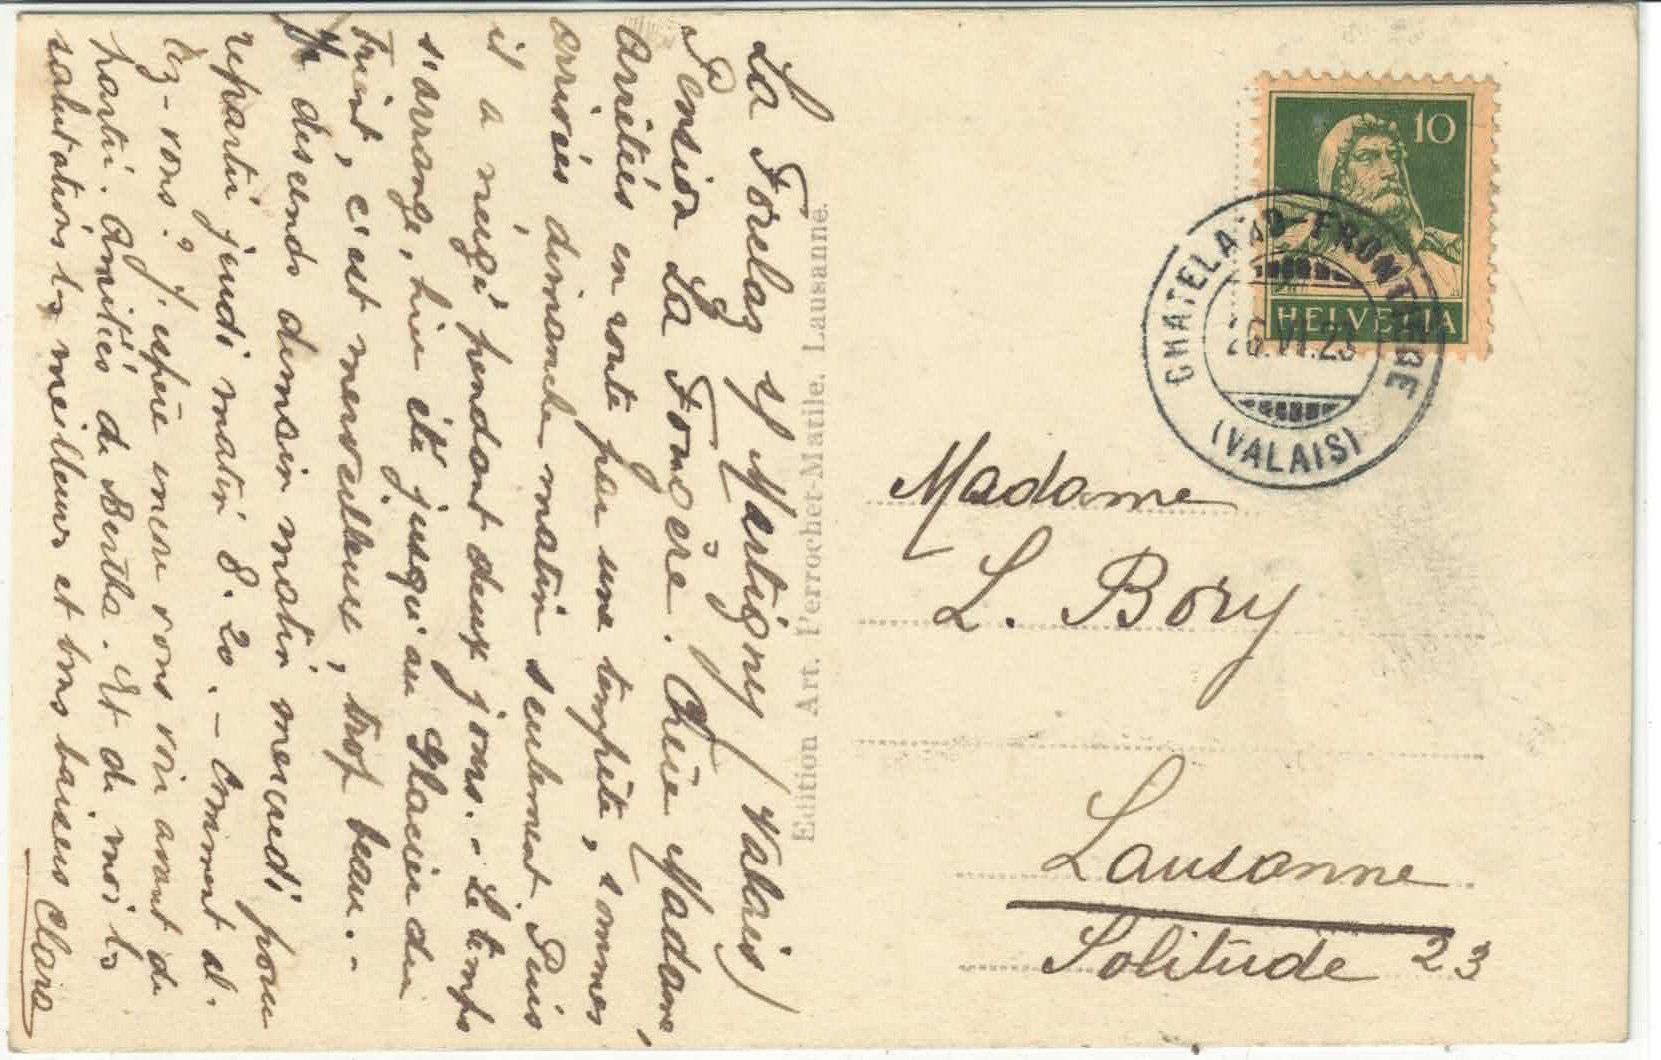 La Forclaz s/ Martigny (Valais)
Pension La Fougère. Chère Madame,
Arrêtés en route par une tempête, sommes
arrivés dimanche matin seulement. Puis
il a neigé pendant deux jours. - Le temps
s'arrange, hier été jusqu'au Glacier du
Trient, c'est merveilleux, trop beau. -
descends demain matin mercredi pour
repartir jeudi matin 8.20. - Comment al-
lez-vous? J'espère vous voir avant de
partir. Amitiés de Bertha. Et de moi les
salutations les meilleures et bons baisers Clara
Edition Art. Perrochet-Matile, Lausanne.
10
HELVETIA
CHATELARD-FRONTIERE
(VALAIS)
Madame
L. Bory
Lausanne
Solitude 23